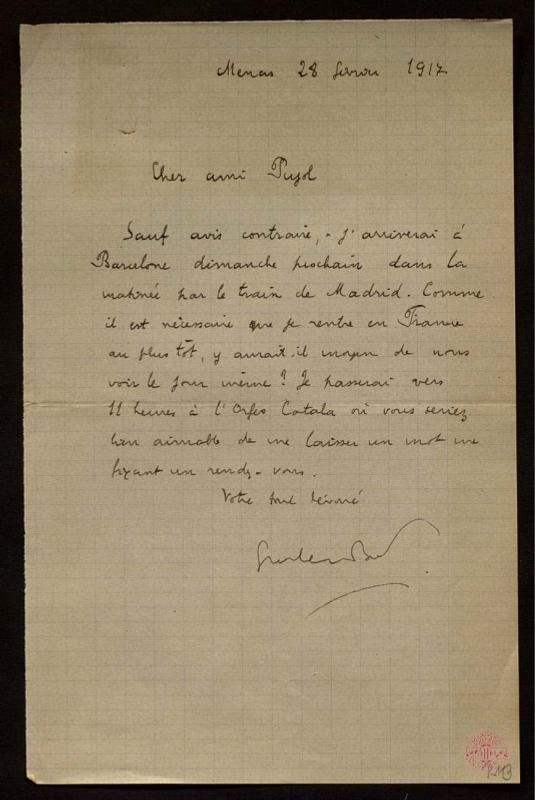 28 février 1917
Cher ami Pujol
Sauf avis contraire, - j'arriverai à
Barcelone dimanche prochain dans la
matinée par le train de Madrid. Comme
il est nécessaire que je rentre en France
au plus tôt, y aurait-il moyen de nous
voir le jour même? Je passerai vers
11 heures à l'Orfeo Catala où vous seriez
bien aimable de me laisser un mot me
fixant un rendez-vous.
Votre tout dévoué